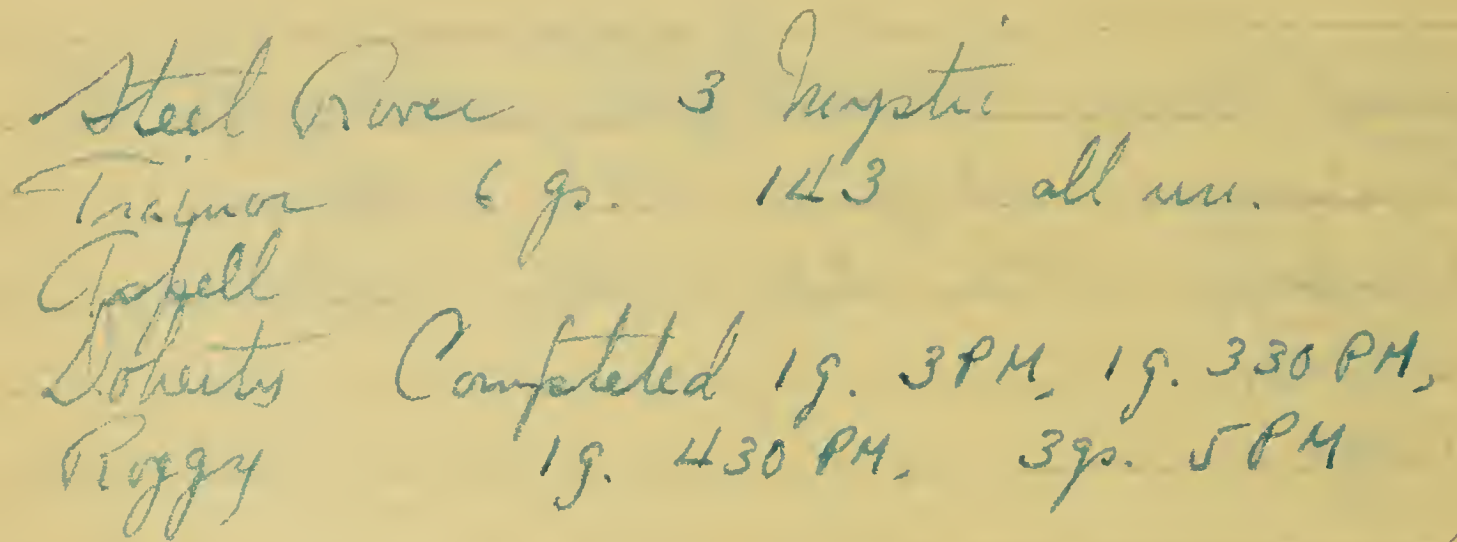 Steel Rover 3 Mystic
Traynor 6 gs. 143 all un.
Doherty Completed 1g. 3PM, 1g. 330 PM,
Roggy 1g. 430 PM, 3gs. 5 PM